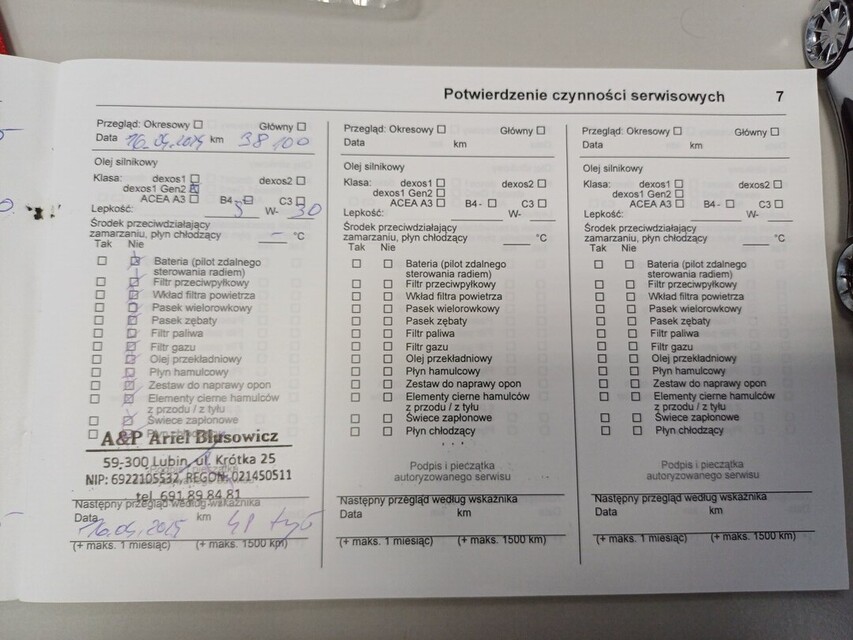 Potwierdzenie czynności serwisowych 7
Przegląd: Okresowy Główny
Data 16.04.2024 km 38 100
Olej silnikowy
Klasa: dexos1 dexos2
dexos1 Gen2
ACEA A3 B4 - C3
Lepkość: 5 W- 30
Środek przeciwdziałający
zamarzaniu, płyn chłodzący - °C
Tak Nie
Bateria (pilot zdalnego
sterowania radiem)
Filtr przeciwpyłkowy
Wkład filtra powietrza
Pasek wielorowkowy
Pasek zębaty
Filtr paliwa
Filtr gazu
Olej przekładniowy
Płyn hamulcowy
Zestaw do naprawy opon
Elementy cierne hamulców
z przodu / z tyłu
Świece zapłonowe
Płyn chłodzący
A&P Ariel Blusowicz
59-300 Lubin, ul. Krótka 25
NIP: 6922105532, REGON: 021450511
tel. 691 89 84 81
Następny przegląd według wskaźnika
Data 16.04.2025 km 48 tyś
(+ maks. 1 miesiąc) (+ maks. 1500 km)
Przegląd: Okresowy Główny
Data km
Olej silnikowy
Klasa: dexos1 dexos2
dexos1 Gen2
ACEA A3 B4 - C3
Lepkość: W-
Środek przeciwdziałający
zamarzaniu, płyn chłodzący °C
Tak Nie
Bateria (pilot zdalnego
sterowania radiem)
Filtr przeciwpyłkowy
Wkład filtra powietrza
Pasek wielorowkowy
Pasek zębaty
Filtr paliwa
Filtr gazu
Olej przekładniowy
Płyn hamulcowy
Zestaw do naprawy opon
Elementy cierne hamulców
z przodu / z tyłu
Świece zapłonowe
Płyn chłodzący
Podpis i pieczątka
autoryzowanego serwisu
Następny przegląd według wskaźnika
Data km
(+ maks. 1 miesiąc) (+ maks. 1500 km)
Przegląd: Okresowy Główny
Data km
Olej silnikowy
Klasa: dexos1 dexos2
dexos1 Gen2
ACEA A3 B4 - C3
Lepkość: W-
Środek przeciwdziałający
zamarzaniu, płyn chłodzący °C
Tak Nie
Bateria (pilot zdalnego
sterowania radiem)
Filtr przeciwpyłkowy
Wkład filtra powietrza
Pasek wielorowkowy
Pasek zębaty
Filtr paliwa
Filtr gazu
Olej przekładniowy
Płyn hamulcowy
Zestaw do naprawy opon
Elementy cierne hamulców
z przodu / z tyłu
Świece zapłonowe
Płyn chłodzący
Podpis i pieczątka
autoryzowanego serwisu
Następny przegląd według wskaźnika
Data km
(+ maks. 1 miesiąc) (+ maks. 1500 km)